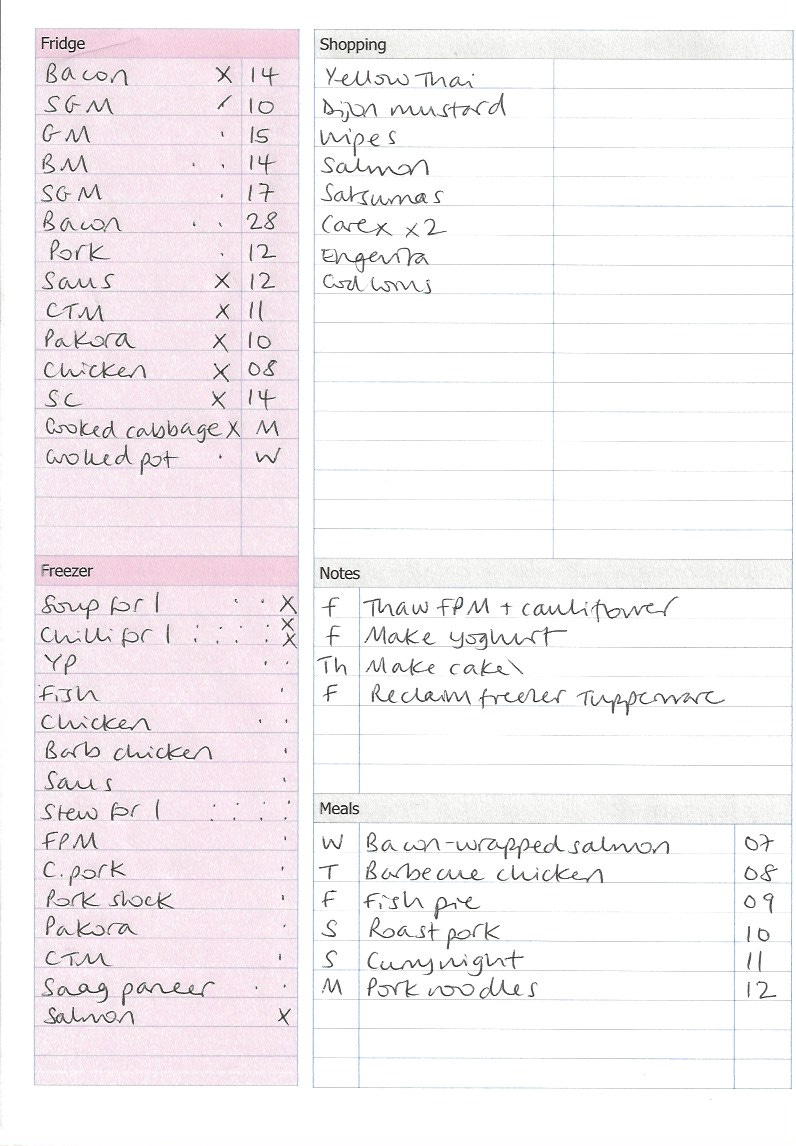 Fridge
Bacon X 14
SGM / 10
GM . 15
BM . . 14
SGM . 17
Bacon . . 28
Pork . 12
Saus X 12
CTM X 11
Pakora X 10
Chicken X 08
SC X 14
Cooked cabbage X M
Cooked pot . W
Freezer
Soup for 1 . . X
Chilli for 1 : : : : X X
YP . .
Fish .
Chicken . .
Barb chicken .
Saus .
Stew for 1 : : : :
FPM .
C. pork .
Pork stock .
Pakora .
CTM .
Saag paneer . .
Salmon X
Shopping
Yellow Thai
Dijon mustard
Wipes
Salmon
Satsumas
Carex x2
Engevita
Cod loins
Notes
F Thaw FPM + cauliflower
F Make yoghurt
Th Make cake\
F Reclaim freezer Tupperware
Meals
W Bacon-wrapped salmon 07
T Barbecue chicken 08
F Fish pie 09
S Roast pork 10
S Curry night 11
M Pork noodles 12